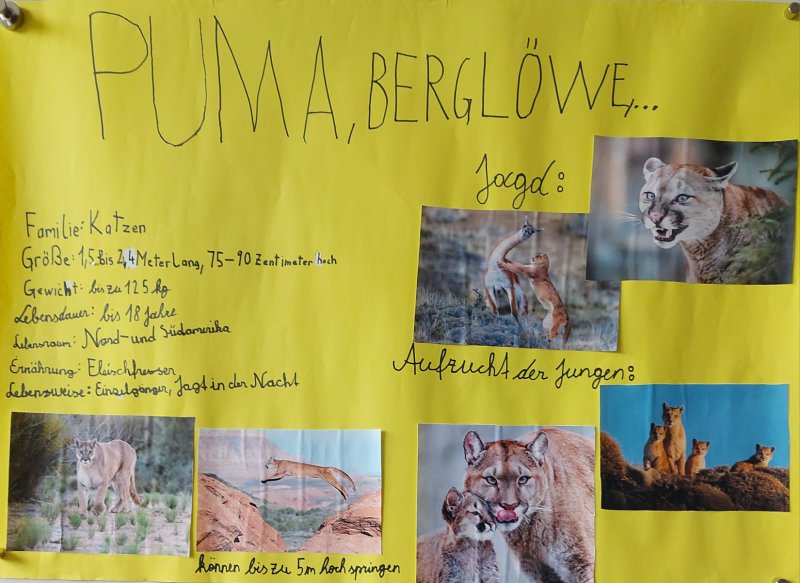 PUMA, BERGLÖWE,...
Jagd:
Familie: Katzen
Größe: 1,5 bis 2,4 Meter lang, 75-90 Zentimeter hoch
Gewicht: bis zu 125 kg
Lebensdauer: bis 18 Jahre
Lebensraum: Nord- und Südamerika
Ernährung: Fleischfresser
Lebensweise: Einzelgänger, Jagt in der Nacht
Aufzucht der Jungen:
können bis zu 5m hoch springen